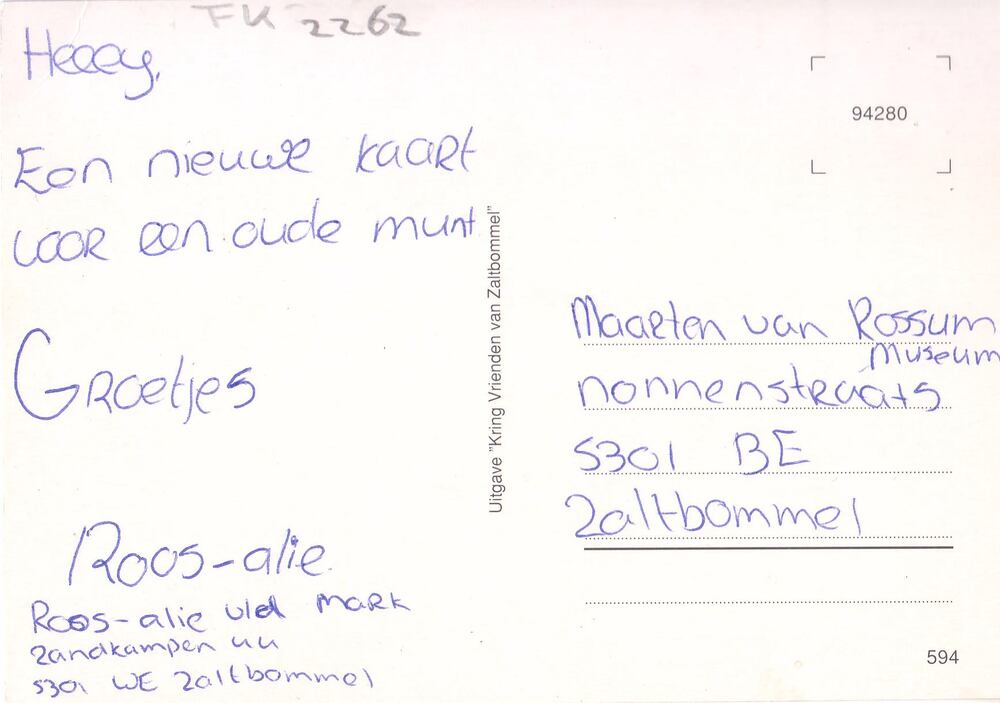 FK 2262
Heeey,
Een nieuwe kaart
voor een oude munt
Groetjes
Roos-alie
Roos-alie vld Mark
Zandkampen 44
5301 WE Zaltbommel
Uitgave "Kring Vrienden van Zaltbommel"
94280
Maarten van Rossum
Museum
nonnenstraat 5
5301 BE
Zaltbommel
594